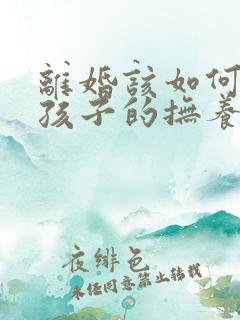 離婚該如何
孩子的撫養
夜緋色
未任同意禁止轉載